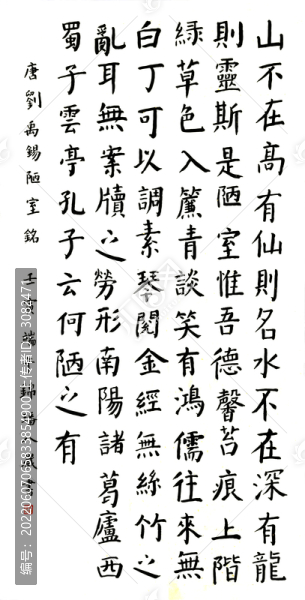 山不在高有仙則名水不在深有龍
則靈斯是陋室惟吾德馨苔痕上階
綠草色入簾青談笑有鴻儒往來無
白丁可以調素琴閱金經無絲竹之
亂耳無案牘之勞形南陽諸葛廬西
蜀子雲亭孔子云何陋之有
唐劉禹錫陋室銘
壬 端
编号：20220607065833854900 上传者ID：3082471